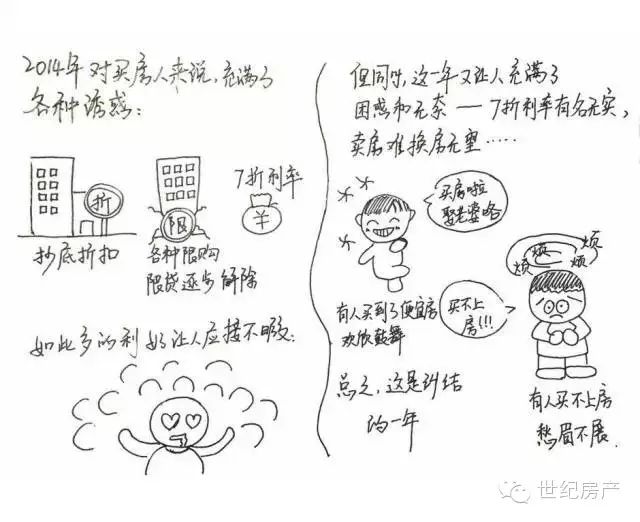 2014年对买房人来说,充满了
各种诱惑:
折
抄底折扣
限
各种限购
限贷逐步解除
7折利率
¥
如此多的利好让人应接不暇.
但同时,这一年又让人充满了
困惑和无奈——7折利率有名无实,
卖房难换房无望……
买房啦
娶老婆咯
有人买到了便宜房
欢欣鼓舞
买不上
房!!!
烦 烦 烦 烦
有人买不上房
愁眉不展.
总之,这是纠结
的一年
世纪房产